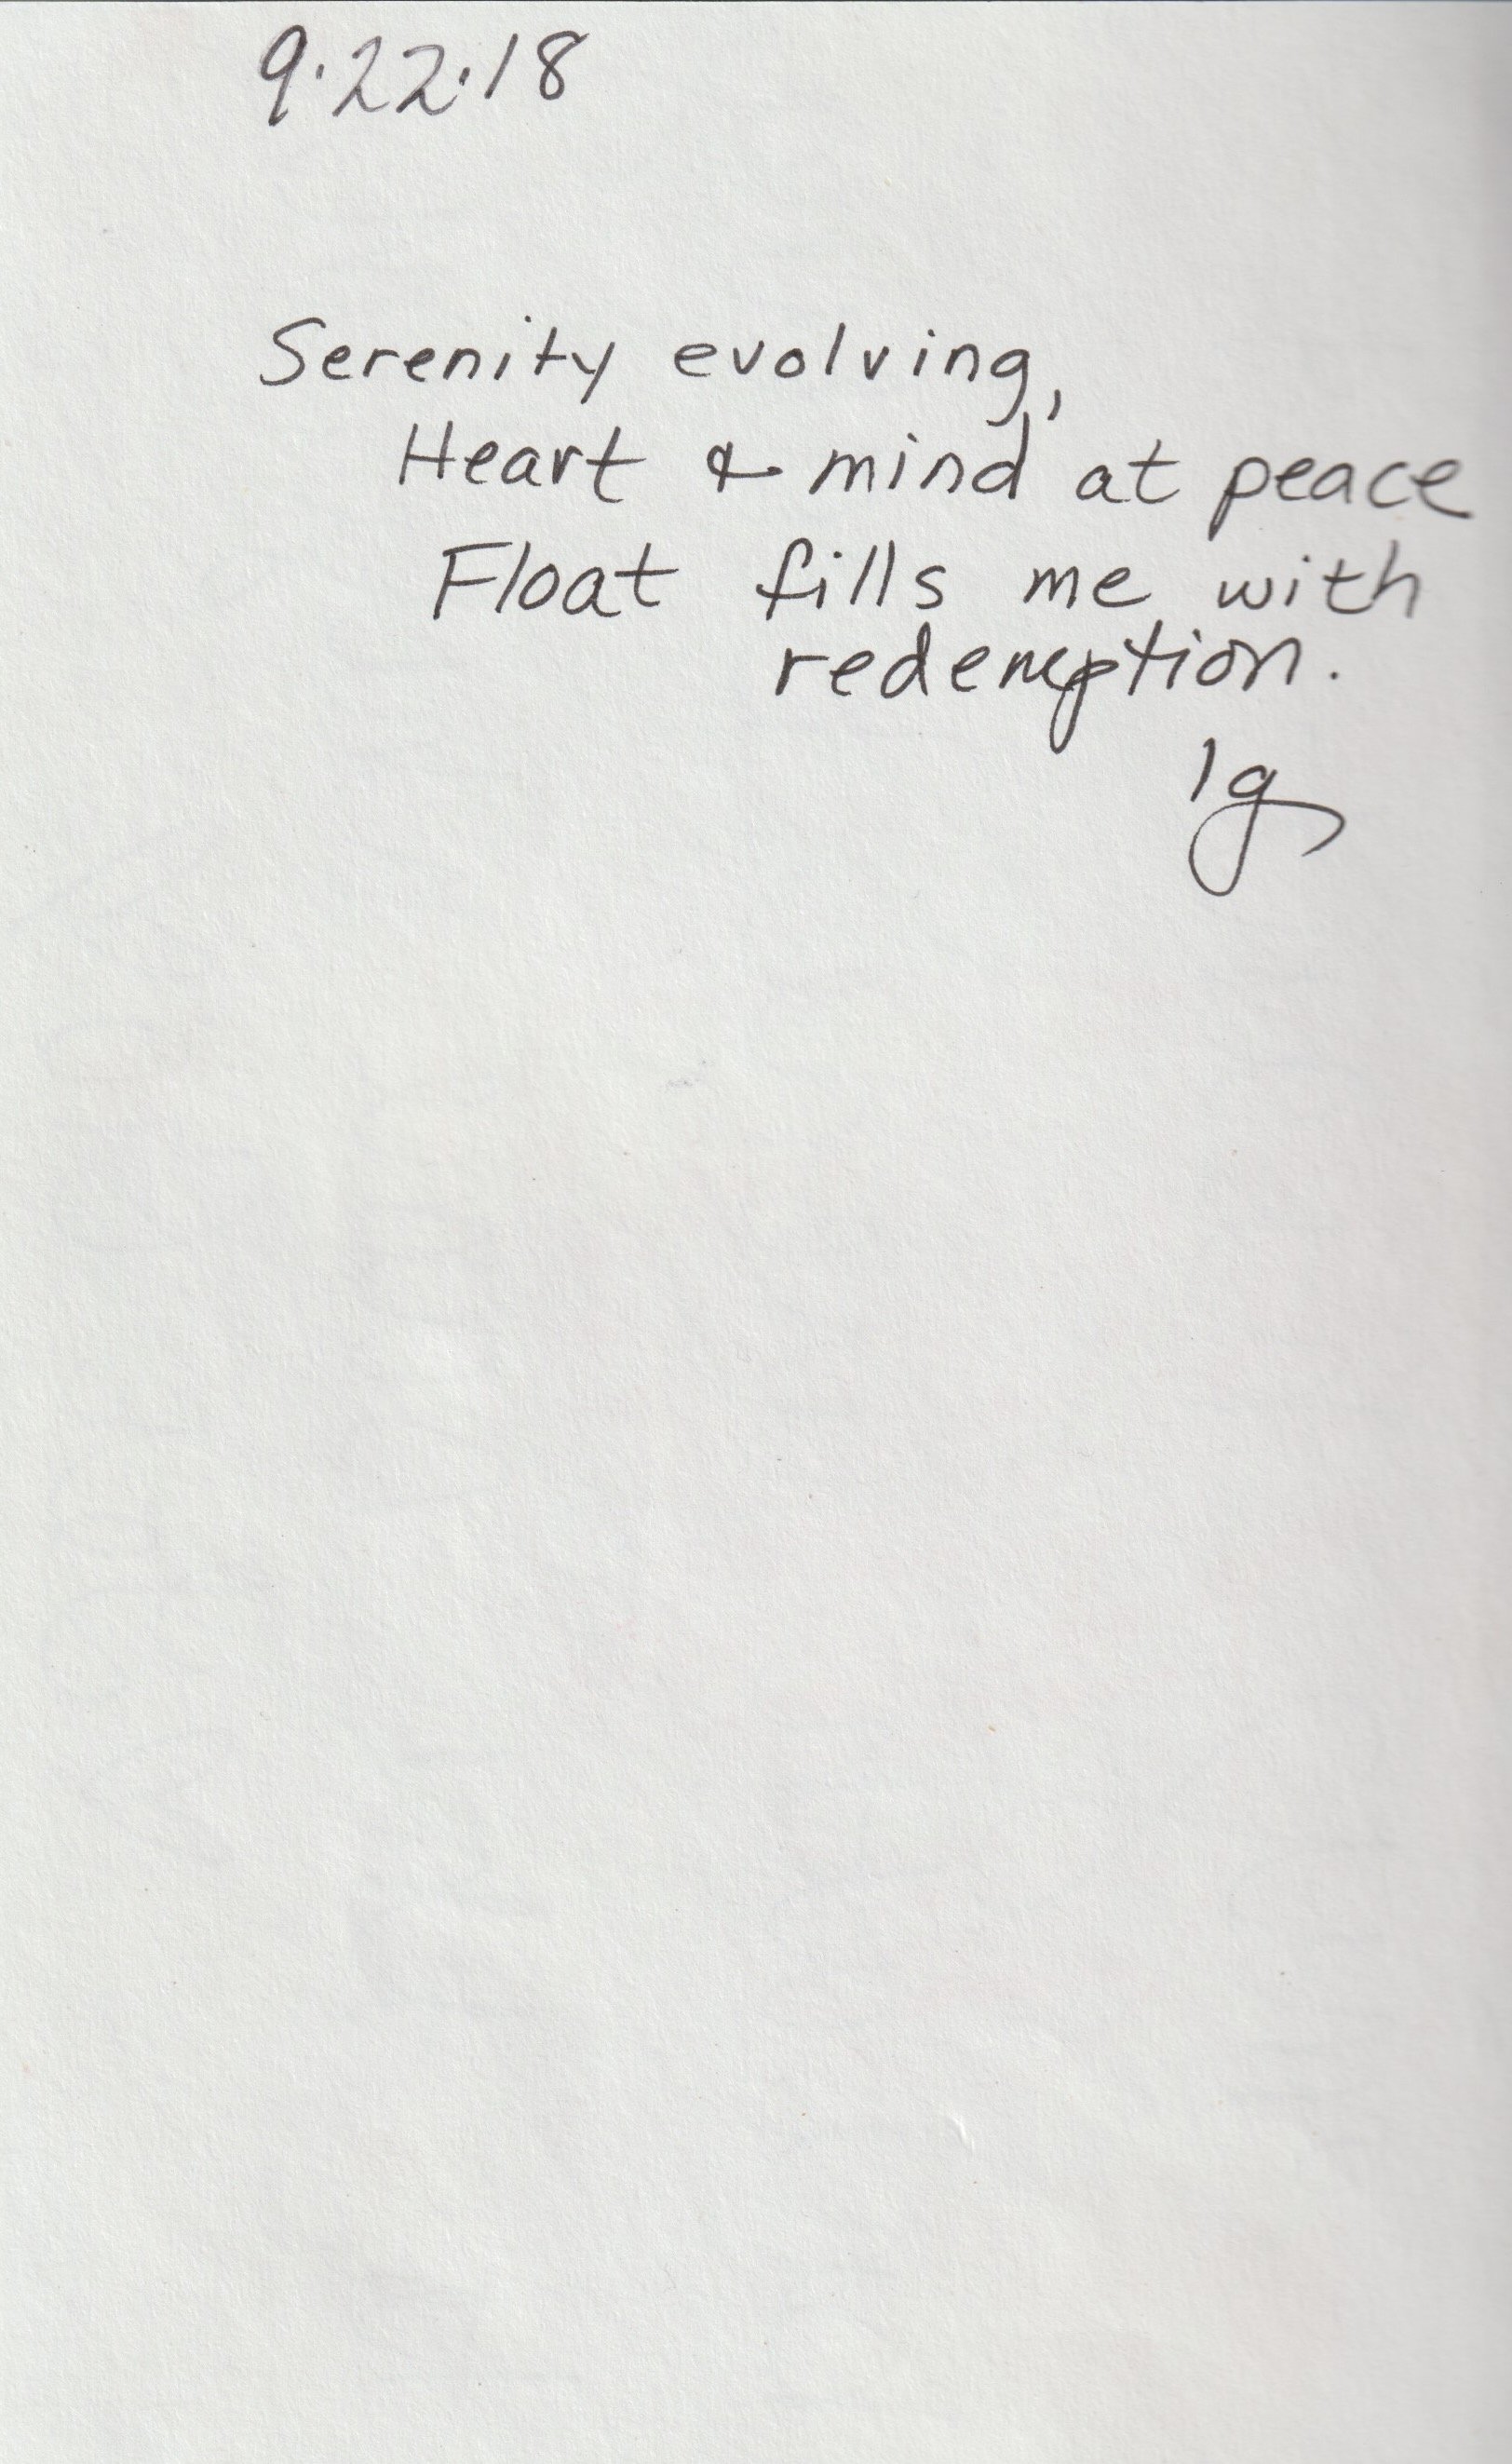 9·22·18
Serenity evolving,
Heart & mind at peace
Float fills me with
redemption.
lg